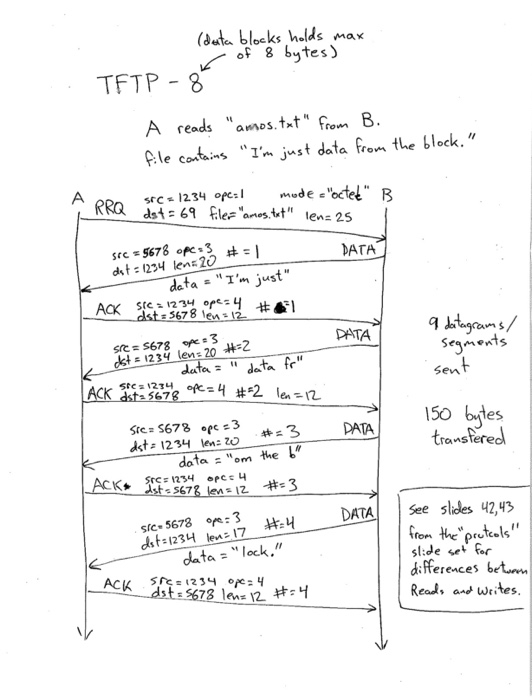 (data blocks holds max
of 8 bytes)
TFTP - 8
A reads "amos.txt" from B.
file contains "I'm just data from the block."
A B
RRQ src = 1234 opc=1 mode = "octet"
dst = 69 file="amos.txt" len = 25
src = 5678 opc = 3 # = 1 DATA
dst = 1234 len=20
data = "I'm just"
ACK src = 1234 opc = 4 # =1
dst = 5678 len = 12
src = 5678 opc = 3 #=2 DATA
dst = 1234 len=20
data = " data fr"
ACK src = 1234 opc = 4 #=2 len = 12
dst = 5678
src = 5678 opc = 3 # = 3 DATA
dst = 1234 len = 20
data = "om the b"
ACK src = 1234 opc = 4 #=3
dst = 5678 len = 12
src = 5678 opc = 3 #=4 DATA
dst = 1234 len = 17
data = "lock."
ACK src = 1234 opc = 4
dst = 5678 len = 12 #=4
9 datagrams/
segments
sent
150 bytes
transfered
See slides 42,43
from the "protcols"
slide set for
differences between
Reads and Writes.